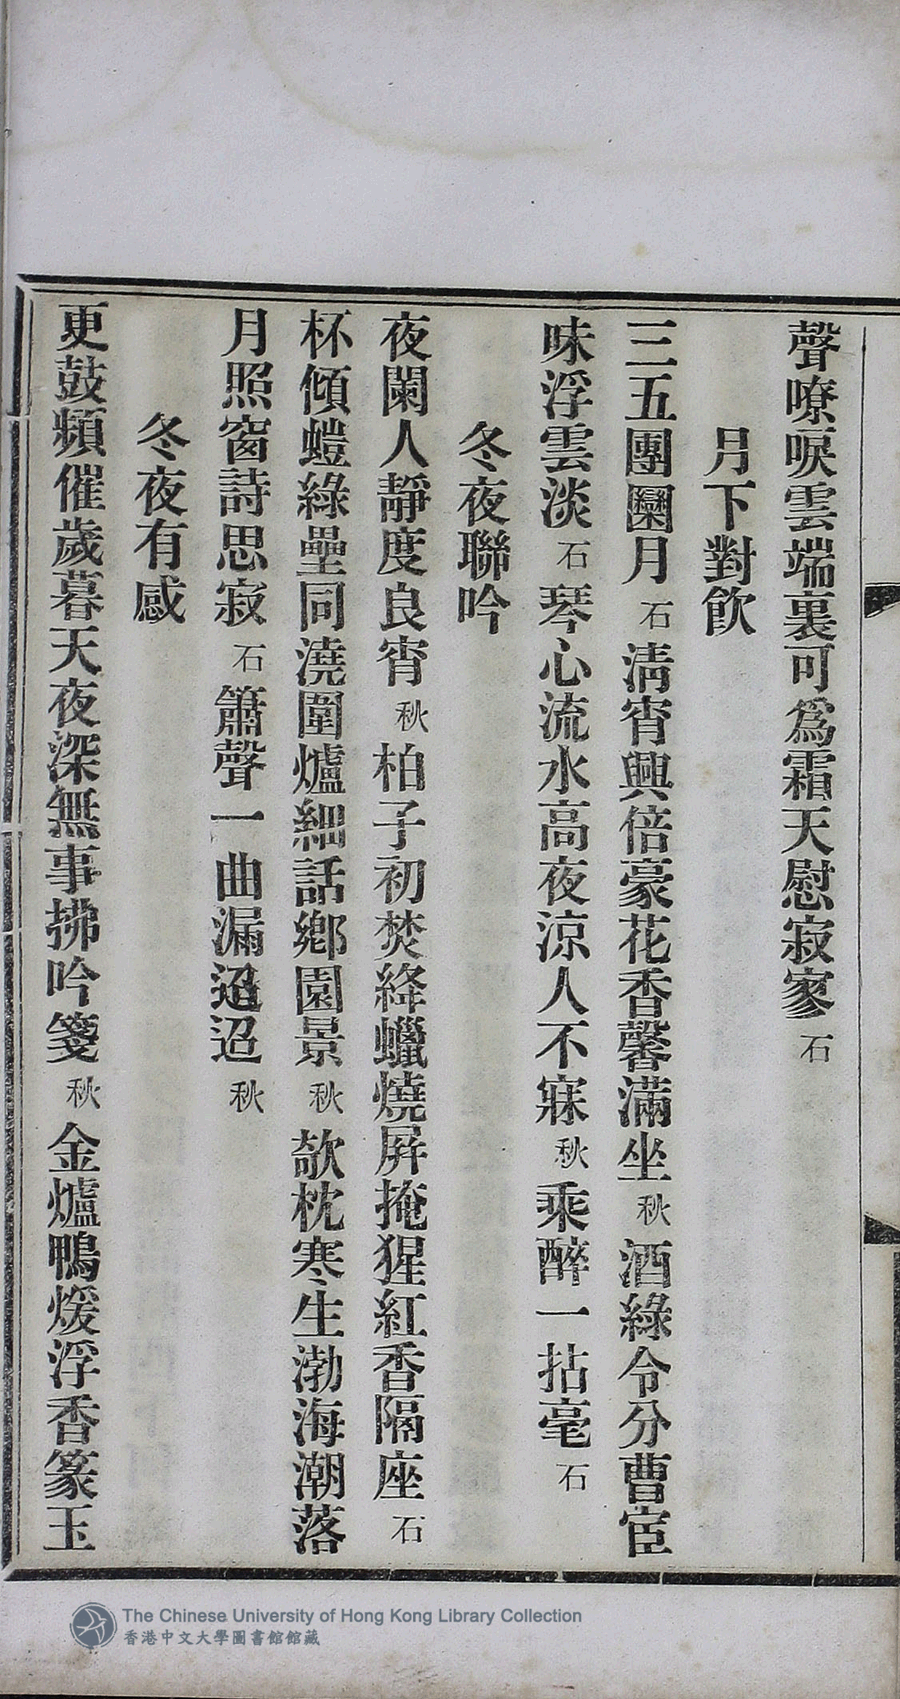 聲嘹唳雲端裏可爲霜天慰寂寥石
月下對飲
三五團圞月石清宵興倍豪花香馨滿坐秋酒綠令分曹宦
味浮雲淡石琴心流水高夜涼人不寐秋乘醉一拈毫石
冬夜聯吟
夜闌人靜度良宵秋柏子初焚絳蠟燒屏掩猩紅香隔座石
杯傾螘綠壘同澆圍爐細話鄉園景秋欹枕寒生渤海潮落
月照窗詩思寂石簫聲一曲漏迢迢秋
冬夜有感
更鼓頻催歲暮天夜深無事拂吟箋秋金爐鴨煖浮香篆玉
The Chinese University of Hong Kong Library Collection
香港中文大學圖書館館藏